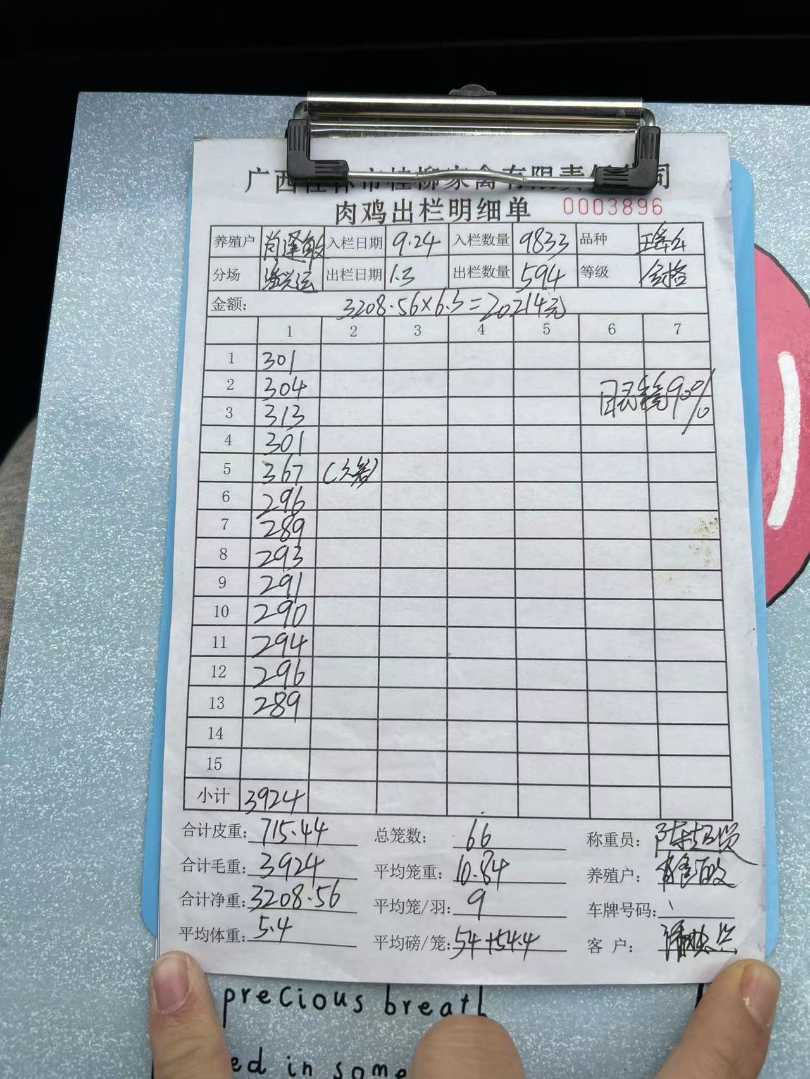 广西桂林市桂柳家禽有限责任公司
肉鸡出栏明细单 0003896
养殖户 肖逢敏 入栏日期 9.24 入栏数量 9833 品种
分场 出栏日期 1.3 出栏数量 594 等级 合格
金额: 3208.56×6.3=20214元
1 2 3 4 5 6 7
1 301
2 304 90%
3 313
4 301
5 367
6 296
7 289
8 293
9 291
10 290
11 294
12 296
13 289
14
15
小计 3924
合计皮重: 715.44 总笼数: 66 称重员:
合计毛重: 3924 平均笼重: 10.84 养殖户:
合计净重: 3208.56 平均笼/羽: 9 车牌号码:
平均体重: 5.4 平均磅/笼: 54+54.4 客户:
precious breath
ed in some